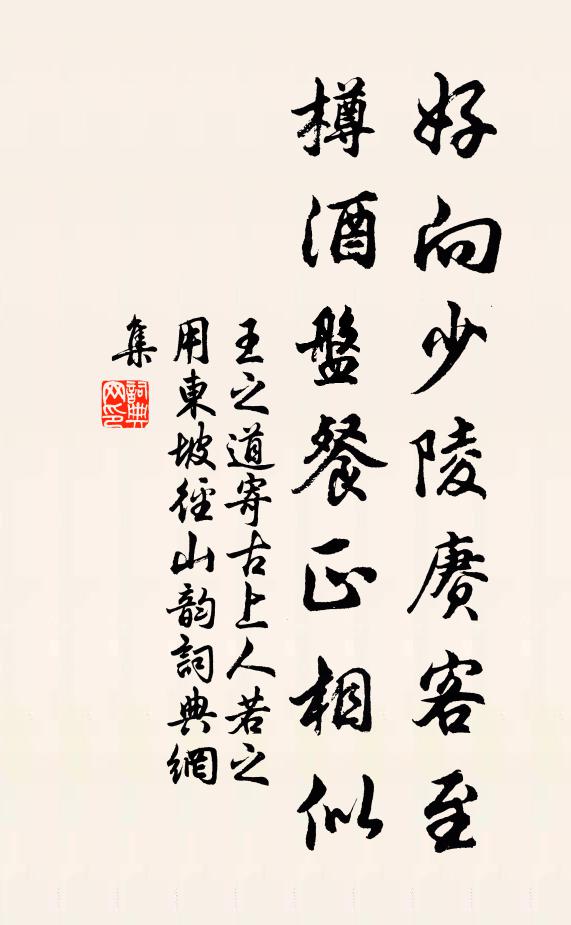 好向少陵賡客至
樽酒盤餐正相似
王之道寄古上人若之
用東坡徑山韵詞典網
集
詞典
网印